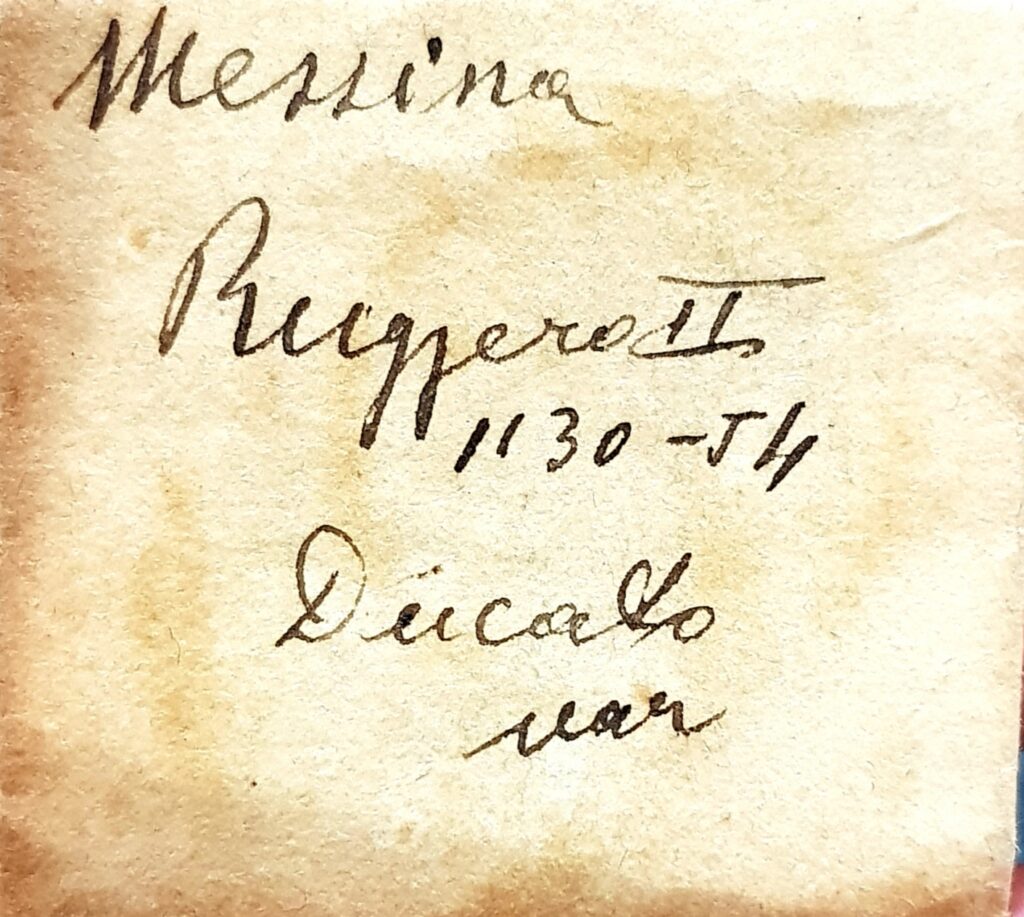 Messina
Ruggero II
1130-54
Ducato
var